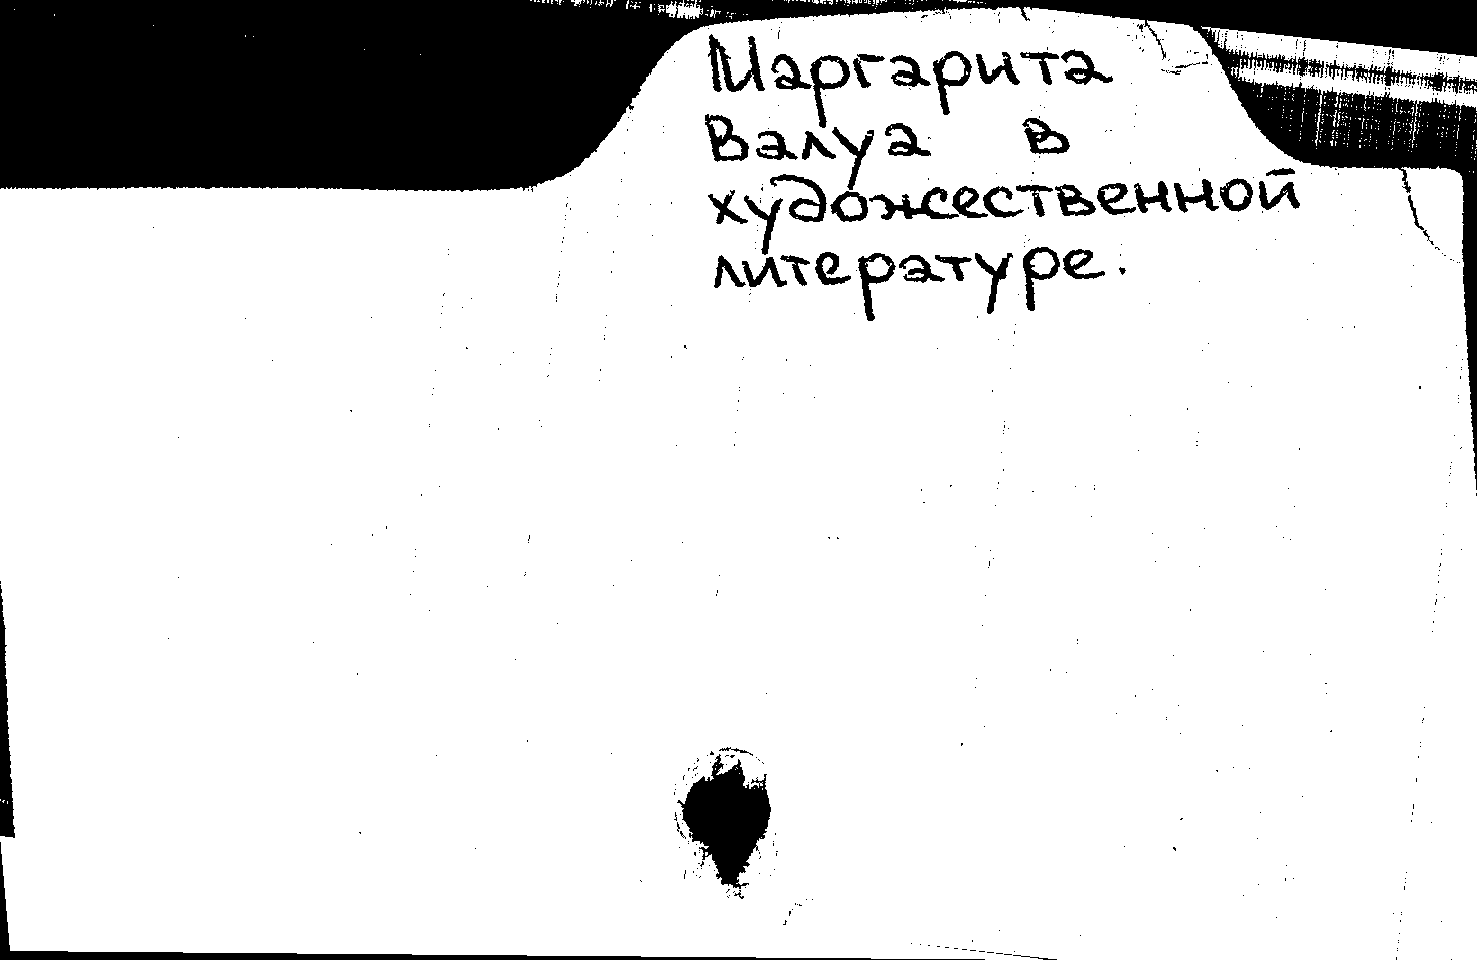 Маргарита
Валуа в
художественной
литературе.